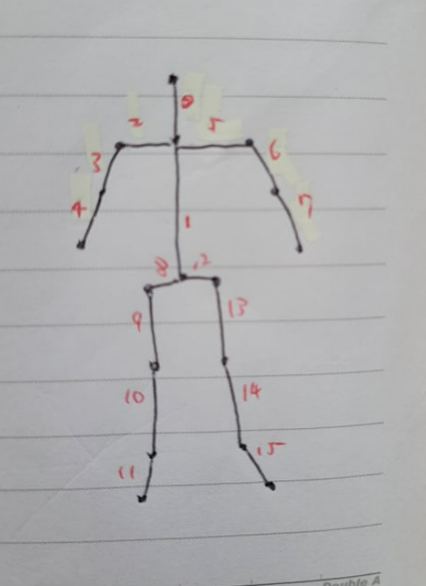 0
2 5
3 6
4 7
1
8 12
9 13
10 14
11 15
Double A